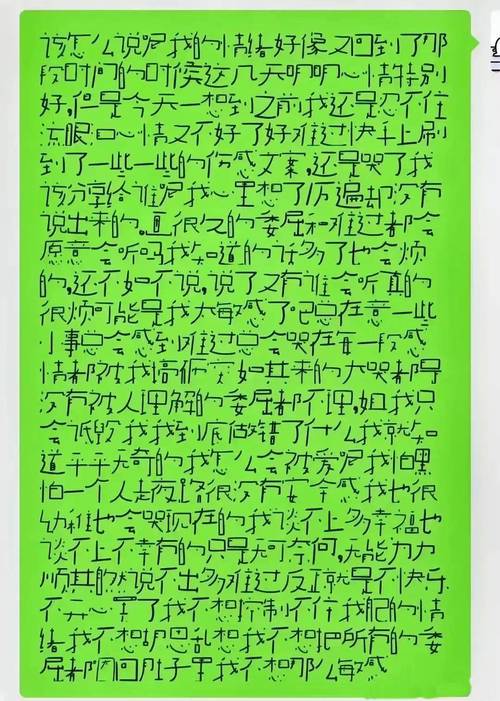 该怎么说呢我的情绪好像又回到了那
段时间的时候这几天明明心情特别
好,但是今天一想到之前我还是忍不住
流眼泪心情又不好了好难过快手上刷
到了一些一些的伤感文案,还是哭了我
该分享给谁呢我心里想了万遍却没有
说出来的。直很久的委屈和难过都会
愿意会听吗我知道的话多了也会烦
的,还不如不说,说了又有谁会听真的
很烦可能是我太敏感了吧总在意一些
小事总会感到难过总会哭在每一段感
情都被我搞俩 如其来的大哭都是
没有被人理解的委屈都不理,姐我只
会诋毁我我到底做错了什么我就知
道平平无奇的我怎么会被爱呢我怕黑
怕一个人走夜路很没有安全感我也很
幼稚也会哭现在的我谈不上多幸福也
谈不上不幸有的只是无可奈何,无能为力
顺其自然说不出多难过反正就是不快乐
不开心 了我不想控制不住我自己的情
绪我不想胡思乱想我不想把所有的委
屈都咽回肚子里我不想那么敏感